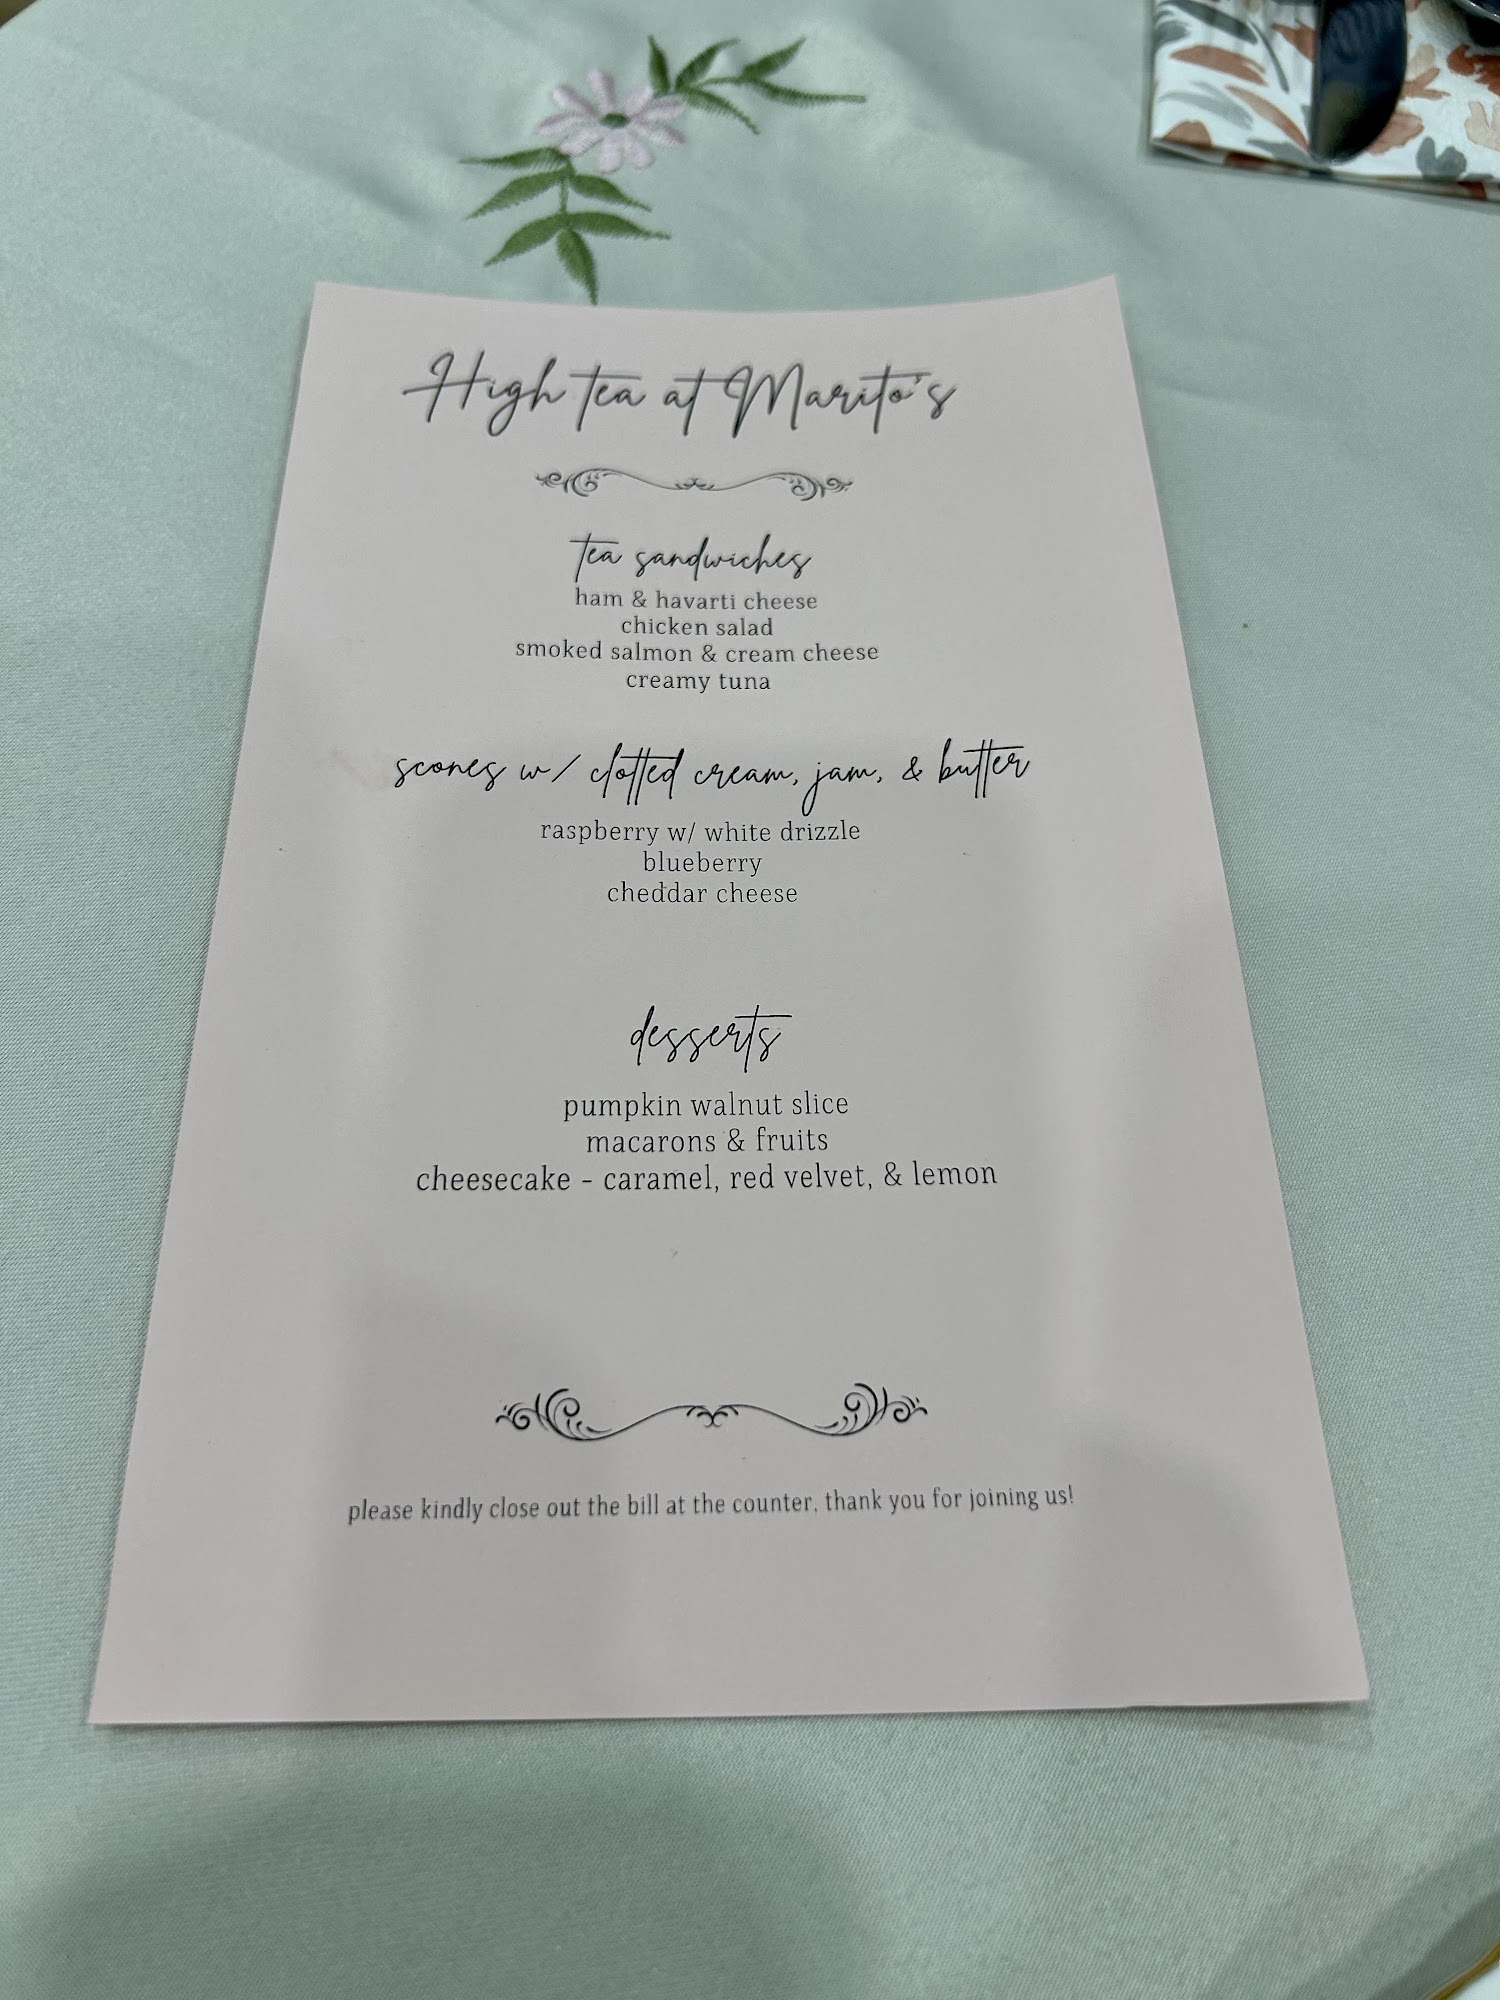 High tea at Marito's
tea sandwiches
ham & havarti cheese
chicken salad
smoked salmon & cream cheese
creamy tuna
scones w/ clotted cream, jam, & butter
raspberry w/ white drizzle
blueberry
cheddar cheese
desserts
pumpkin walnut slice
macarons & fruits
cheesecake - caramel, red velvet, & lemon
please kindly close out the bill at the counter, thank you for joining us!